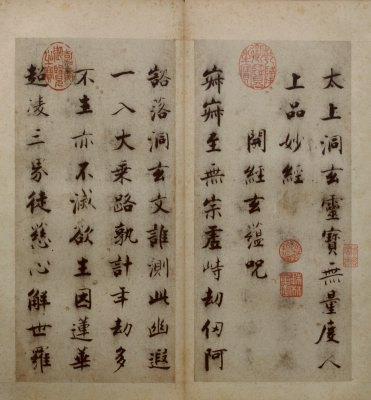 太上洞玄靈寶無量度人
上品妙經
開經玄蘊呪
寂寂至無宗虛峙劫仞阿
豁落洞玄文誰測此幽遐
一入大乘路孰計年劫多
不生亦不滅欲生因蓮華
超淩三界徒慈心解世羅